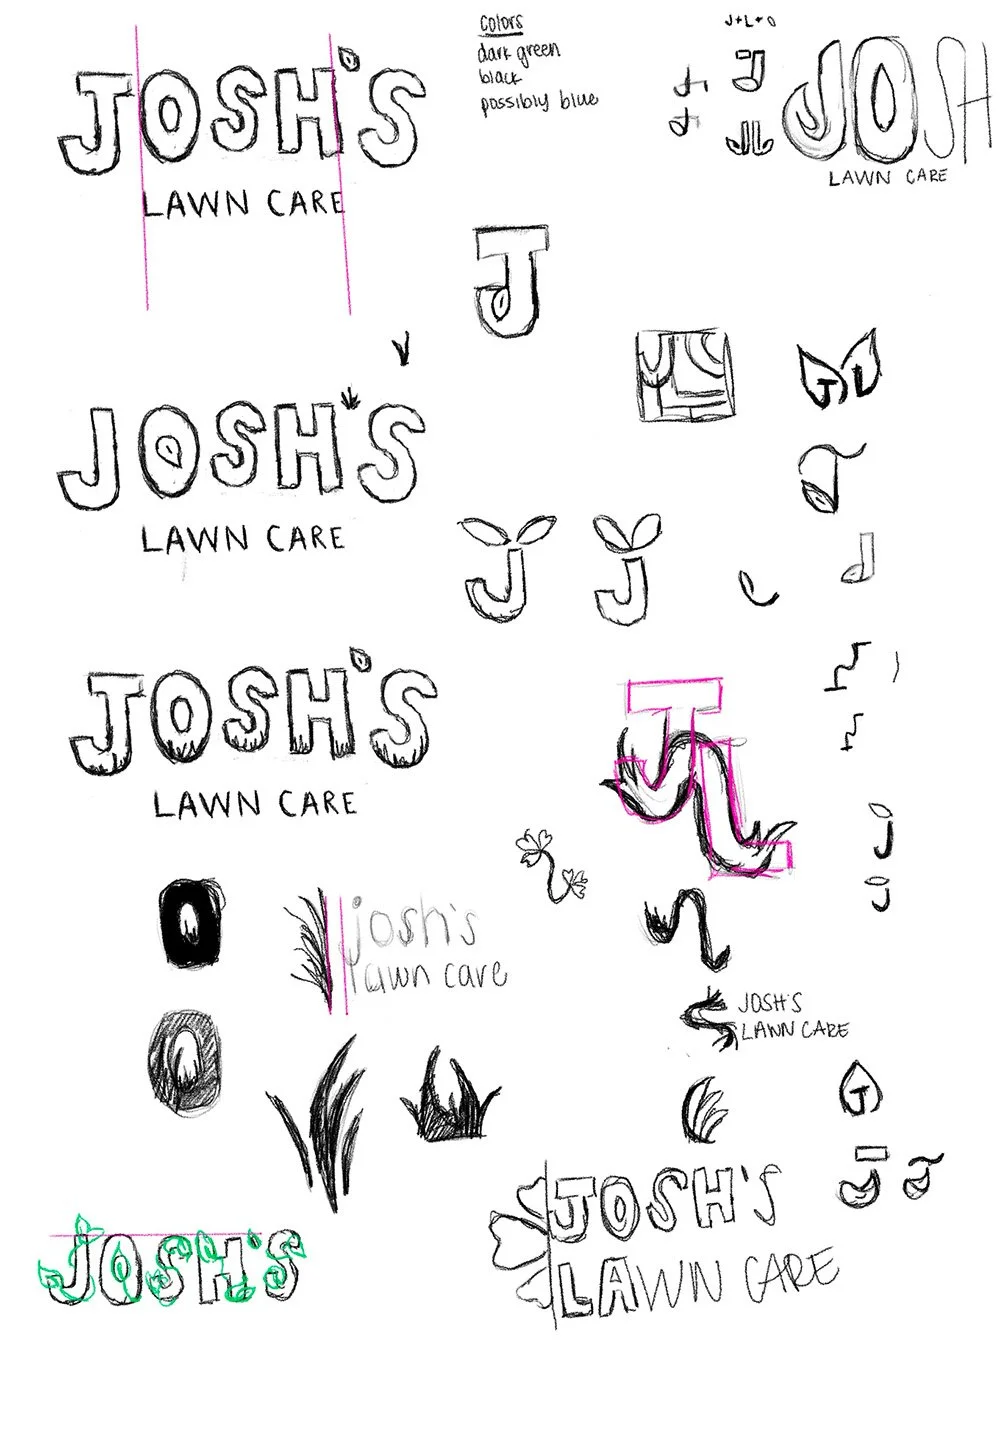 JOSH'S
LAWN CARE
colors
dark green
black
possibly blue
J+L+O
J
J
J
JL
JOSH
LAWN CARE
J
JOSH'S
LAWN CARE
J L
J L
J
J
J
J
JOSH'S
LAWN CARE
JL
j
j
O
josh's
lawn care
JOSH'S
LAWN CARE
O
J
J
J
JOSH'S
LAWN CARE
JOSH'S